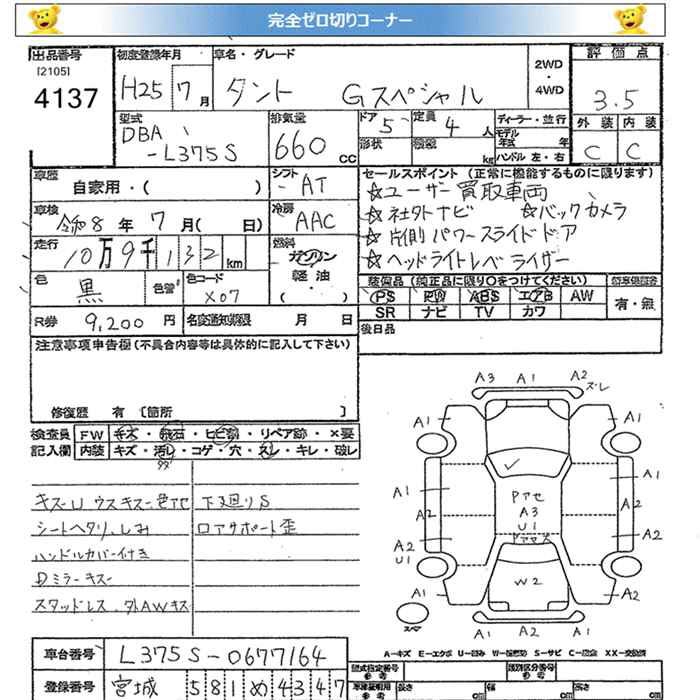 完全ゼロ切りコーナー
出品番号 初度登録年月 車名・グレード 2WD・4WD 評価点
[2105]
4137 H25 7月 タント Gスペシャル 3.5
型式 排気量 ドア 定員 ディーラー・並行 外装 内装
DBA 660 CC 5 4人 モデル年式 年 C C
-L375S 形状 積載 kg ハンドル 左・右
車歴 シフト セールスポイント (正常に機能するものに限ります)
自家用・( ) -AT ☆ユーザー買取車両
車検 冷房 ☆社外ナビ ☆バックカメラ
令和8年 7月( 日) AAC ☆片側パワースライドドア
走行 燃料 ☆ヘッドライトレベライザー
10万9千132 km ガソリン
色 色替 色コード 軽油 装備品 (純正品に限り○をつけてください)
黒 X07 ・( ) PS PW ABS エアB AW 有・無
R券 9,200円 名変通知期限 月 日 SR ナビ TV カワ
注意事項申告欄(不具合内容等は具体的に記入して下さい) 後日品
修復歴 有 [箇所 ]
検査員 FW キズ・飛石・ヒビ割・リペア跡・×要
記入欄 内装 キズ・汚レ・コゲ・穴・スレ・キレ・破レ
キズーU ウスキズー色アセ 下廻りS
シートヘタリ、しみ ロアサポート歪
ハンドルカバー付き
Dミラーキズー
スタッドレス、外AWキズ
A3 A1 A2 ズレ
A1 A1
A1 Pアセ A2
A2 A3
U1
A2 A2
U1
A1 W2 A2
A1 A1
A-キズ E-エクボ U-凹み W-補修跡 S-サビ C-腐食 XX-交換済
車台番号 L375S-0677164
登録番号 宮城 581 め 4347
型式指定番号 参考 類別区分番号 参考
長さ cm 幅 cm 高さ cm